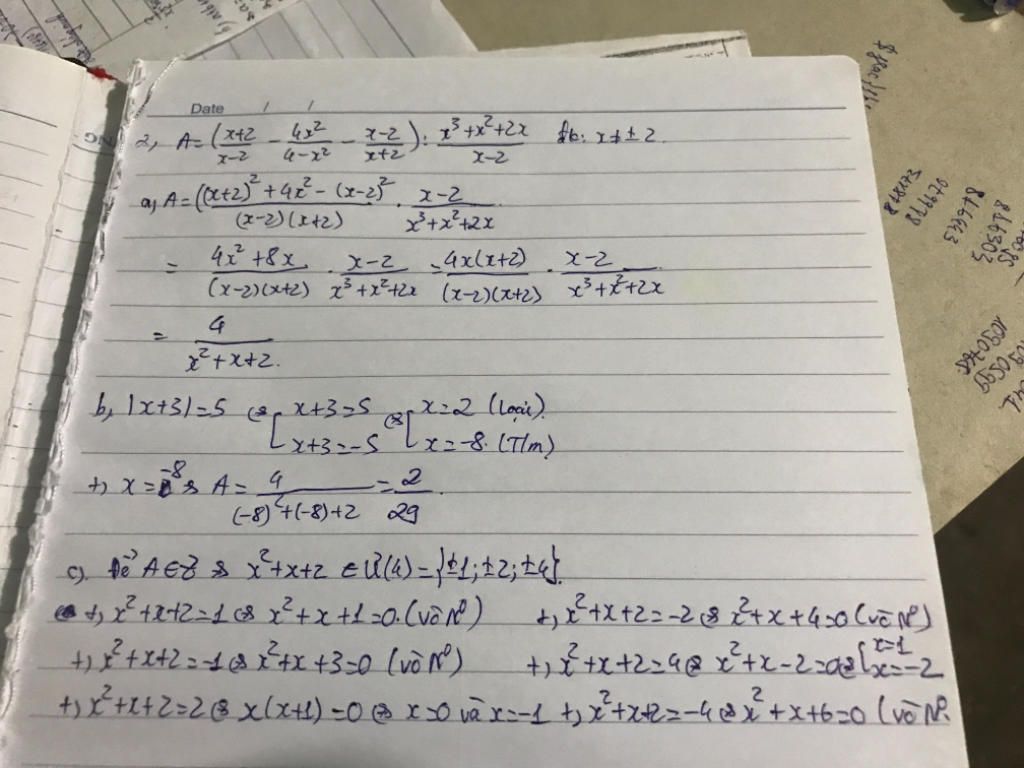 Date / /
2, A = (\frac{x+2}{x-2} - \frac{4x^2}{4-x^2} - \frac{x-2}{x+2}) : \frac{x^3+x^2+2x}{x-2} đb: x ≠ ± 2.
a, A = (\frac{(x+2)^2 + 4x^2 - (x-2)^2}{(x-2)(x+2)} . \frac{x-2}{x^3+x^2+2x}
= \frac{4x^2+8x}{(x-2)(x+2)} . \frac{x-2}{x^3+x^2+2x} = \frac{4x(x+2)}{(x-2)(x+2)} . \frac{x-2}{x^3+x^2+2x}
= \frac{4}{x^2+x+2}.
b, |x+3| = 5 ⇔ [ x+3=5 ⇔ [ x=2 (loại).
x+3=-5 x=-8 (T/m)
+, x = -8 ⇒ A = \frac{4}{(-8)^2+(-8)+2} = \frac{2}{29}.
c). Để A ∈ Z ⇒ x^2+x+2 ∈ Ư(4) = {±1; ±2; ±4}.
+, x^2+x+2=1 ⇔ x^2+x+1=0. (vô N^o) +, x^2+x+2=-2 ⇔ x^2+x+4=0 (vô N^o)
+, x^2+x+2=-1 ⇔ x^2+x+3=0 (vô N^o) +, x^2+x+2=4 ⇔ x^2+x-2=0 ⇔ [ x=1
x=-2
+, x^2+x+2=2 ⇔ x(x+1)=0 ⇔ x=0 và x=-1 +, x^2+x+2=-4 ⇔ x^2+x+6=0 (vô N^o.